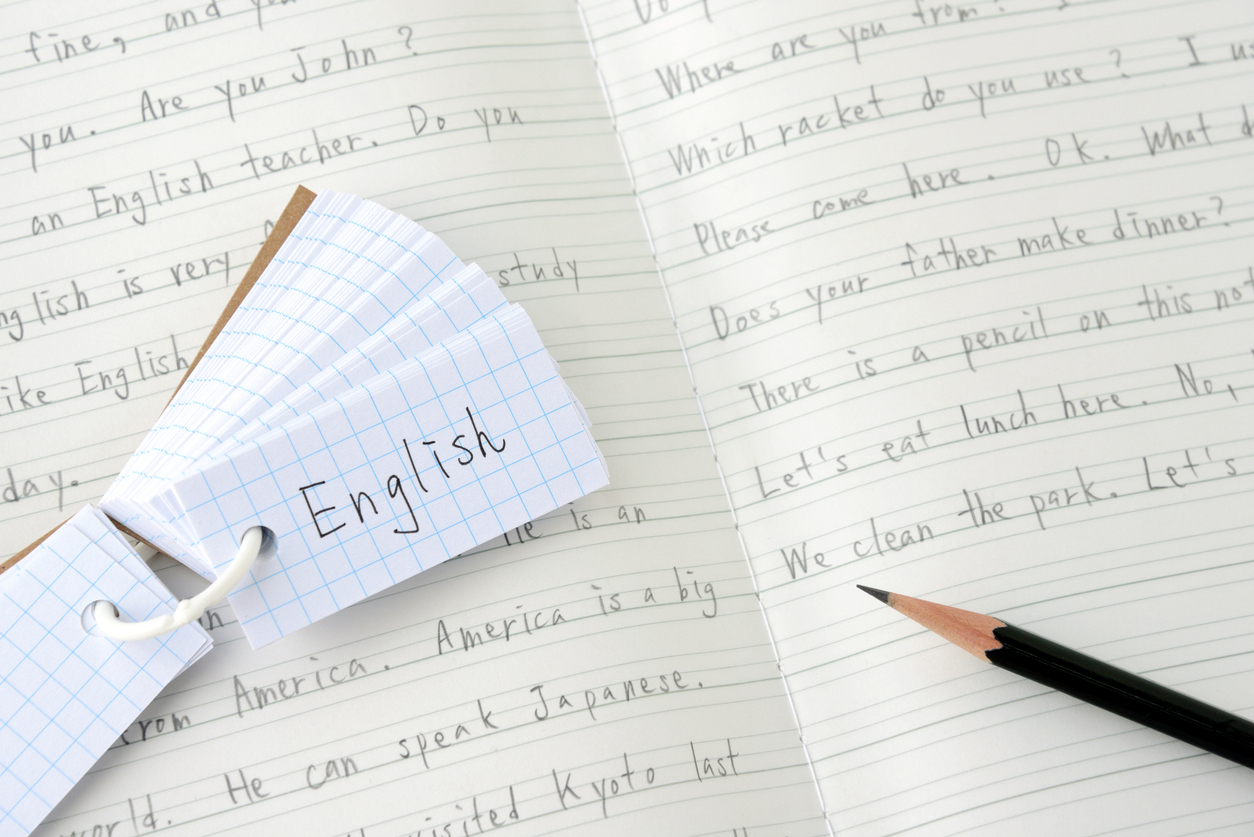 fine, and you
you. Are you John?
an English teacher. Do you
is very
study
English
day.
He is an
America. America is a big
He can speak Japanese.
Kyoto last
English
Do
Where are you from?
Which racket do you use? I
Please come here. Ok. What
Does your father make dinner?
There is a pencil on this
Let's eat lunch here. No,
We clean the park. Let's